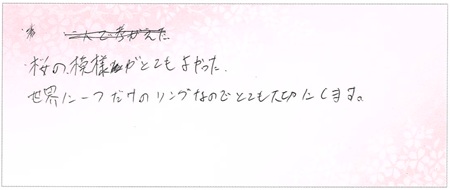 ・桜の模様がとてもよかった。
世界に一つだけのリングなのでとても大切にします。